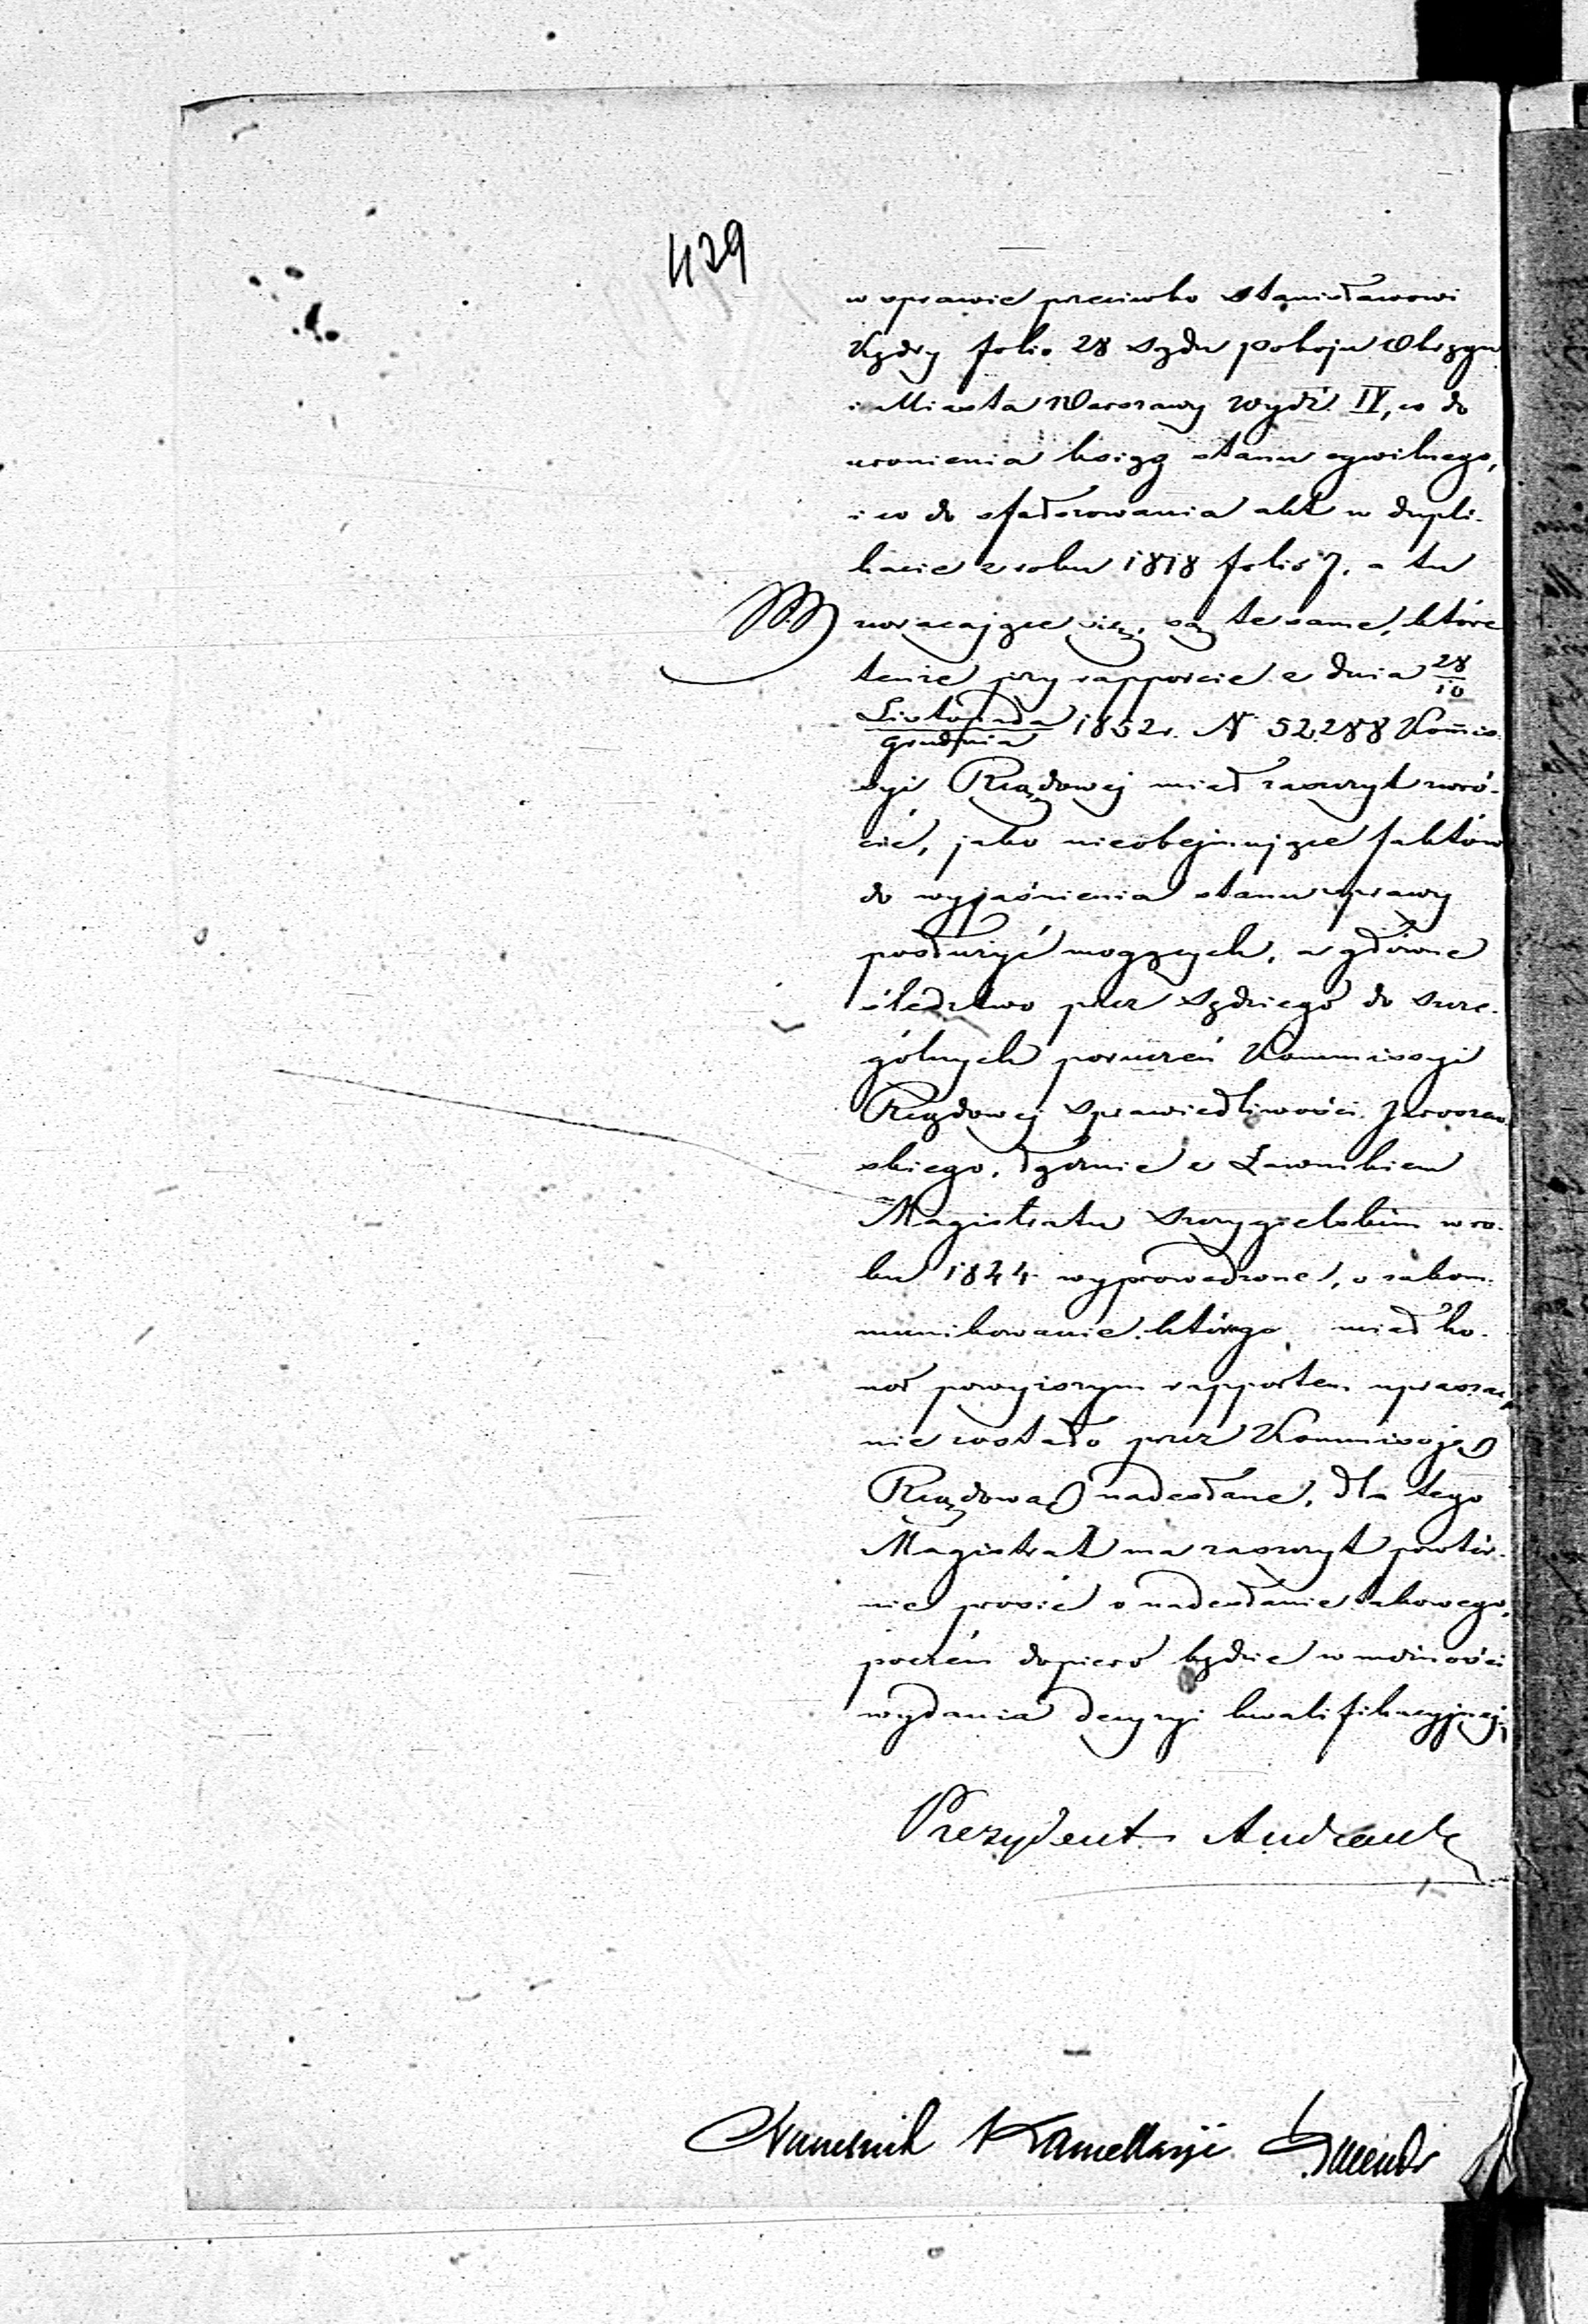 439
w sprawie przeciwko Stanisławowi
folio 28 Sądu Pokoju Okręgu
i Miasta Warszawy Wydz. IV, co do
uronienia księgi stanu cywilnego,
i co do sfałszowania akt w dupli-
kacie z roku 1818 folio 7. a tu
zwracające się, są te same, które
tenże przy rapporcie z dnia 28/10
Listopada/Grudnia 1852 r. N 52,288 Kom̄is-
syi Rządowej miał zaszczyt zwró-
cić, jako nieobejmujące faktów
do wyjaśnienia stanu sprawy
posłużyć mogących, a główne
śledztwo przez Sędziego do szcze-
gólnych poruczeń Kommissyi
Rządowej Sprawiedliwości
skiego, łącznie z Ławnikiem
Magistratu Szczygielskim w ro-
ku 1844 wyprowadzone, o zakom-
munikowanie którego miał ho-
nor powyższym rapportem upraszać,
nie zostało przez Kommissję
Rządową nadesłane, dla tego
Magistrat ma zaszczyt powtór-
nie prosić o nadesłanie takowego,
poczém dopiero będzie w możności
wydania decyzyi kwalifikacyjnej.
Prezydent Andrault
Naczelnik Kancellaryi